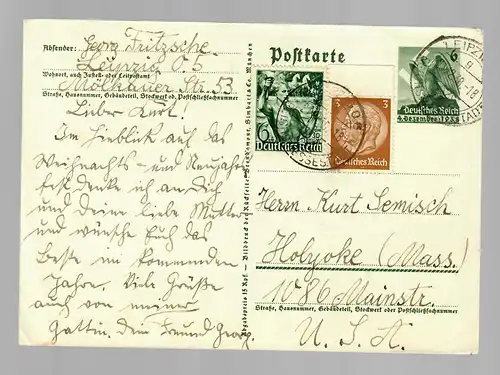 Absender: Georg Fritzsche
Leipzig O5
Wohnort, auch Zustell- oder Leitpostamt
Mölkauer Str. 53
Straße, Hausnummer, Gebäudeteil, Stockwerk od. Postschließfachnummer
Lieber Kurt!
Im Hinblick auf das
Weihnachts- und Neujahrs-
fest denke ich an Dich
und Deine liebe Mutter
und wünsche Euch das
Beste im kommenden
Jahre. Viele Grüße
auch von meiner
Gattin. Dein Freund Georg.
Postkarte
LEIPZIG
6
Deutsches Reich
4. Dezember 1938
6
Deutsches Reich
3 3
Deutsches Reich
Herrn Kurt Semisch
Holyoke (Mass.)
1086 Mainstr.
Straße, Hausnummer, Gebäudeteil, Stockwerk oder Postschließfachnummer
U. S. A.